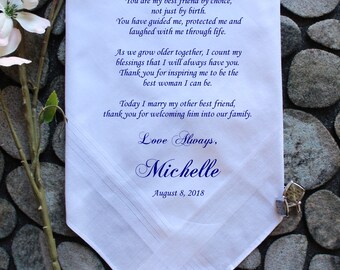 You are my best friend by choice,
not just by birth.
You have guided me, protected me and
laughed with me through life.
As we grow older together, I count my
blessings that I will always have you.
Thank you for inspiring me to be the
best woman I can be.
Today I marry my other best friend,
thank you for welcoming him into our family.
Love Always,
Michelle
August 8, 2018